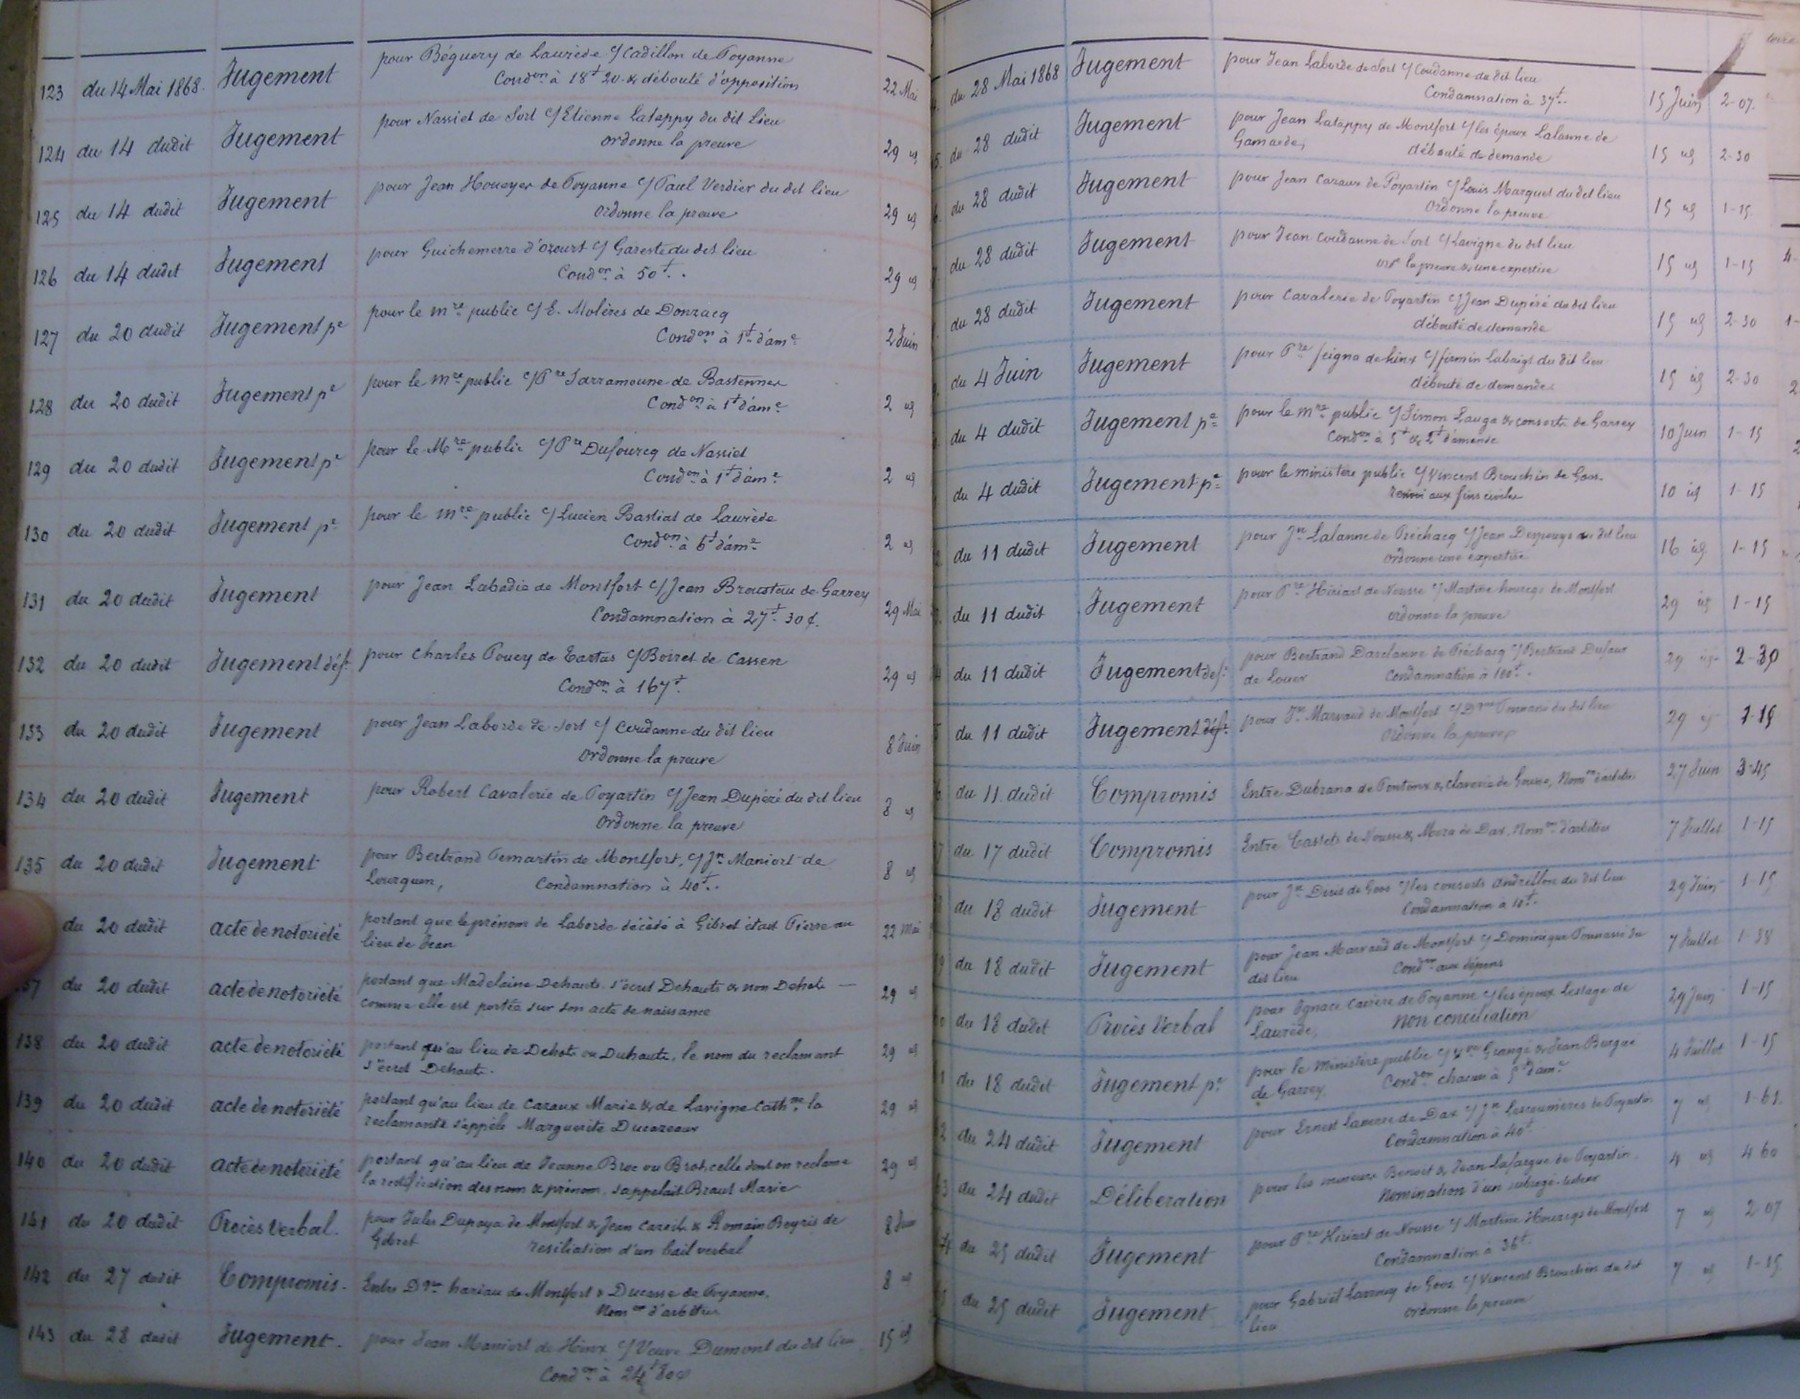 123 du 14 Mai 1868. Jugement pour Béguery de Laurède c/ Cadillon de Poyanne 22 Mai
Cond^on à 18^f 20 & débouté d'opposition
124 du 14 dudit Jugement pour Nassiet de Sort c/ Etienne Latappy du dit lieu 29 id
ordonne la preuve
125 du 14 dudit Jugement pour Jean Houeyer de Poyanne c/ Paul Verdier du dit lieu 29 id
ordonne la preuve
126 du 14 dudit Jugement pour Guichemerre d'Ozourt c/ Gareste du dit lieu 29 id
Cond^on à 50^f.
127 du 20 dudit Jugement p^e pour le m^re public c/ E. Molères de Donzacq 2 Juin
Cond^on à 1^f d'am^e
128 du 20 dudit Jugement p^e pour le m^re public c/ P^re Sarramoune de Bastennes 2 id
Cond^on à 1^f d'am^e
129 du 20 dudit Jugement p^e pour le M^re public c/ P^re Dufourcq de Nassiet 2 id
Cond^on à 1^f d'am^e
130 du 20 dudit Jugement p^e pour le m^re public c/ Lucien Bastiat de Laurède 2 id
Cond^on à 6^f d'am^e
131 du 20 dudit Jugement pour Jean Labadie de Montfort c/ Jean Broustau de Garrey 29 Mai
Condamnation à 27^f 30 c.
132 du 20 dudit Jugement déf^t pour Charles Pouey de Tartas c/ Boiret de Cassen 29 id
Cond^on à 167^f.
133 du 20 dudit Jugement pour Jean Laborde de Sort c/ Coudanne du dit lieu 8 Juin
ordonne la preuve
134 du 20 dudit Jugement pour Robert Cavalerie de Poyartin c/ Jean Dupéré du dit lieu 8 id
ordonne la preuve
135 du 20 dudit Jugement pour Bertrand Temartin de Montfort, c/ J^n Maniort de 8 id
Lourquen, Condamnation à 40^f.
du 20 dudit acte de notoriété portant que le prénom de Laborde décédé à Gibret était Pierre au 22 mai
lieu de Jean
37 du 20 dudit acte de notoriété portant que Madelaine Dehauts s'écrit Dehauts & non Dehets 29 id
comme elle est portée sur son acte de naissance
138 du 20 dudit acte de notoriété portant qu'au lieu de Dehets ou Duhauts, le nom du reclamant 29 id
s'écrit Dehauts.
139 du 20 dudit acte de notoriété portant qu'au lieu de Cazaux Marie & de Lavigne Cath^ne la 29 id
reclamante s'appele Marguerite Ducazeaux
140 du 20 dudit acte de notoriété portant qu'au lieu de Jeanne Broc ou Brot, celle dont on reclame 29 id
la rectification des nom & prénom, s'appelait Braut Marie
141 du 20 dudit Procès Verbal. pour Jules Dupaya de Montfort & Jean & Romain Beyris de 8 Juin
Gibret resiliation d'un bail verbal
142 du 27 dudit Compromis. Entre D^que hariau de Montfort & Ducasse de Poyanne. 8 id
Nom^on d'arbitres
143 du 28 dudit Jugement. pour Jean Maniort de Hinx c/ Veuve Dumont du dit lieu 15 id
Cond^on à 24^f 80 c
du 28 Mai 1868 Jugement pour Jean Laborde de Sort c/ Coudanne du dit lieu 15 Juin 2-07
Condamnation à 37^f.
du 28 dudit Jugement pour Jean Latappy de Montfort c/ les époux Lalanne de 15 id 2-30
Gamarde, débouté de demande
du 28 dudit Jugement pour Jean Cazaux de Poyartin c/ Louis Marquet du dit lieu 15 id 1-15
ordonne la preuve
du 28 dudit Jugement pour Jean Coudanne de Sort c/ Lavigne du dit lieu 15 id 1-15
ord^e la preuve & une expertise
du 28 dudit Jugement pour Cavalerie de Poyartin c/ Jean Dupéré du dit lieu 15 id 2-30
débouté de demande
du 4 Juin Jugement pour P^re Seigna de hinx c/ firmin Labaigt du dit lieu 15 id 2-30
débouté de demande
du 4 dudit Jugement p^e pour le m^re public c/ Simon Lauga & consorts de Garrey 10 Juin 1-15
Cond^on à 5^f & 2^f d'amende
du 4 dudit Jugement p^e pour le ministère public c/ Vincent Brouchin de Goos. 10 id 1-15
renvoi aux fins civiles
du 11 dudit Jugement pour J^n Lalanne de Préchacq c/ Jean Despouys du dit lieu 16 id 1-15
ordonne une expertise
du 11 dudit Jugement pour P^re Hiriart de Nousse c/ Martine houregs de Montfort 29 id 1-15
ordonne la preuve
du 11 dudit Jugement def^t pour Bertrand Darclanne de Préchacq c/ Bertrand Dufour 29 id 2-30
de Louer Condamnation à 100^f.
du 11 dudit Jugement déf^t pour J^n Marsaud de Montfort c/ D^que du dit lieu 29 id 1-15
Ordonne la preuve
du 11 dudit Compromis Entre Dubrana de Pontonx & Claverie de Gousse, Nom^on d'arbitres 27 Juin 3-45
du 17 dudit Compromis Entre Cassets de Nousse & Mora de Dax. Nom^on d'arbitres 7 Juillet 1-15
du 18 dudit Jugement pour J^n de Goos c/ les consorts dudrillon du dit lieu 29 Juin 1-15
Condamnation à 10^f.
du 18 dudit Jugement pour Jean Marsaud de Montfort c/ Dominique du 7 Juillet 1 38
dit lieu Cond^on aux dépens
du 18 dudit Procès Verbal pour Ignace Carrère de Poyanne c/ les époux Lestage de 29 Juin 1-15
Laurède, Non conciliation
du 18 dudit Jugement p^e pour le ministère public c/ Grangé & Jean Burgue 4 Juillet 1-15
de Garrey Cond^on chacun à 5^f d'am^e
du 24 dudit Jugement pour Ernest Lamere de Dax c/ J^n de Poyartin 7 id 1-61
Condamnation à 40^f
du 24 dudit Délibération pour les mineurs Benoit & Jean Lafargue de Poyartin. 4 id 4 60
Nomination d'un subrogé-tuteur
du 25 dudit Jugement pour P^re Hiriart de Nousse c/ Martine Houregs de Montfort 7 id 2 07
Condamnation à 36^f.
du 25 dudit Jugement pour Gabriel Lannuy de Goos c/ Vincent Brouchin du dit 7 id 1-15
lieu ordonne la preuve